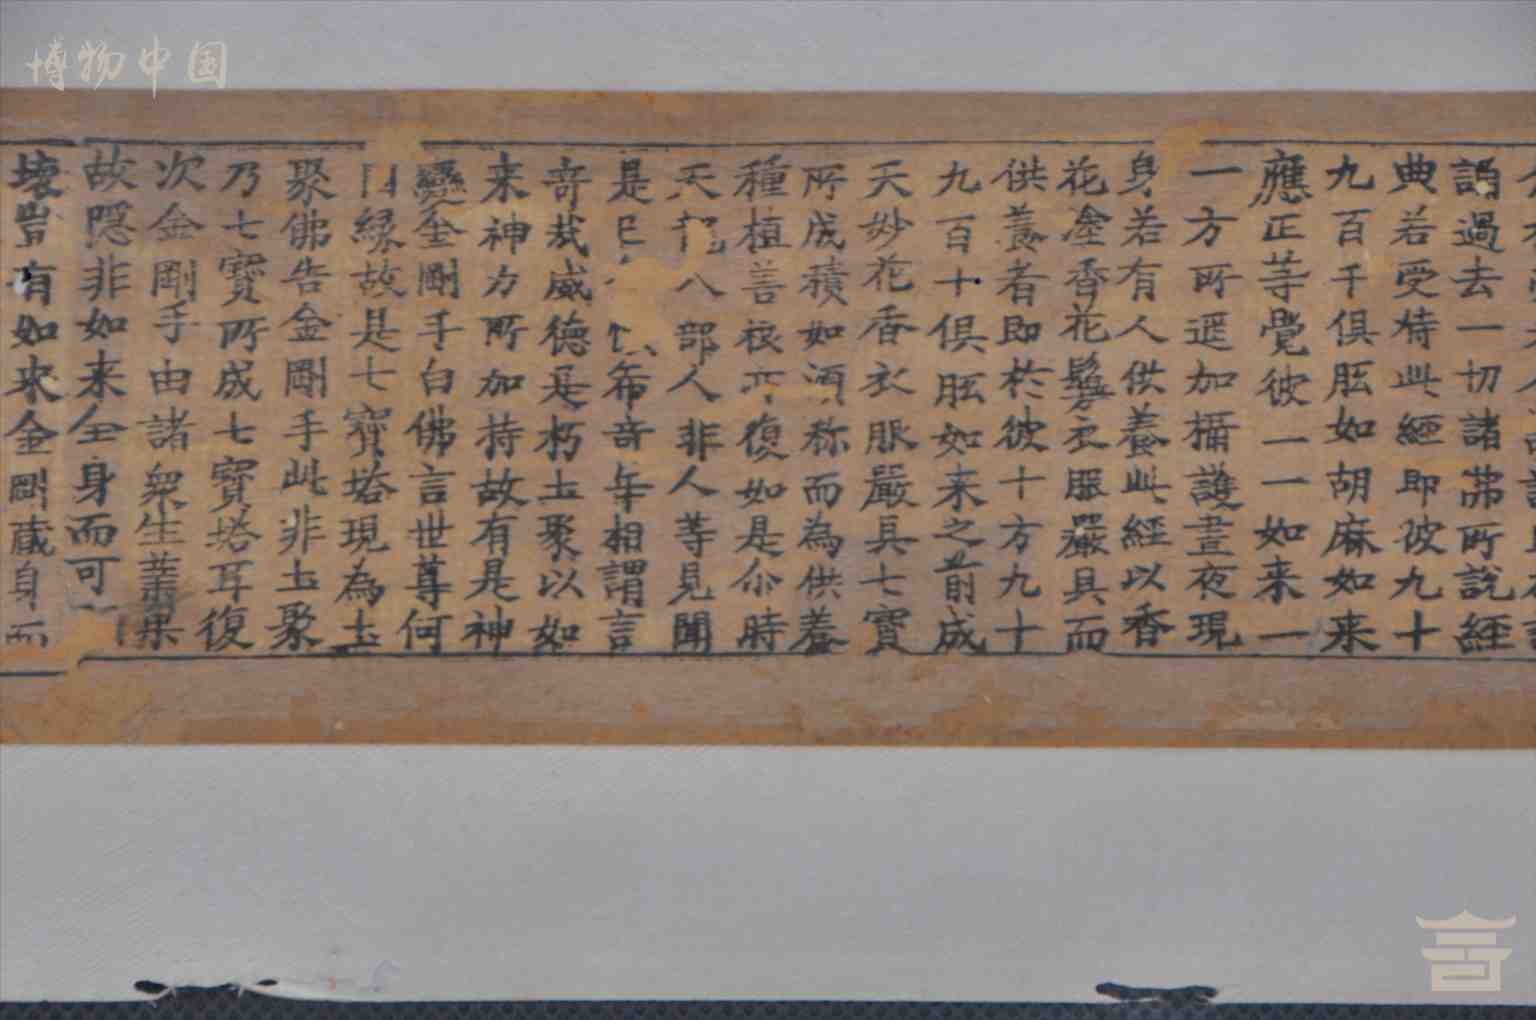 博物中国
誦過去一切諸佛所說經
典若受持此經即彼九十
九百千俱胝如胡麻如来
應正等覺彼一一如来一
一方所遮加攝護晝夜現
身若有人供養此經以香
花塗香花鬘衣服嚴具而
供養者即於彼十方九十
九百十俱胝如来之前成
天妙花香衣服嚴具七寶
所成積如須弥而為供養
種植善根亦復如是尒時
天龍八部人非人等見聞
是已希奇年相謂言
奇哉威德是朽土聚以如
来神力所加持故有是神
變金剛手白佛言世尊何
因緣故是七寶塔現為土
聚佛告金剛手此非土聚
乃七寶所成七寶塔耳復
次金剛手由諸衆生業果
故隱非如来全身而可
壞豈有如来金剛藏身而